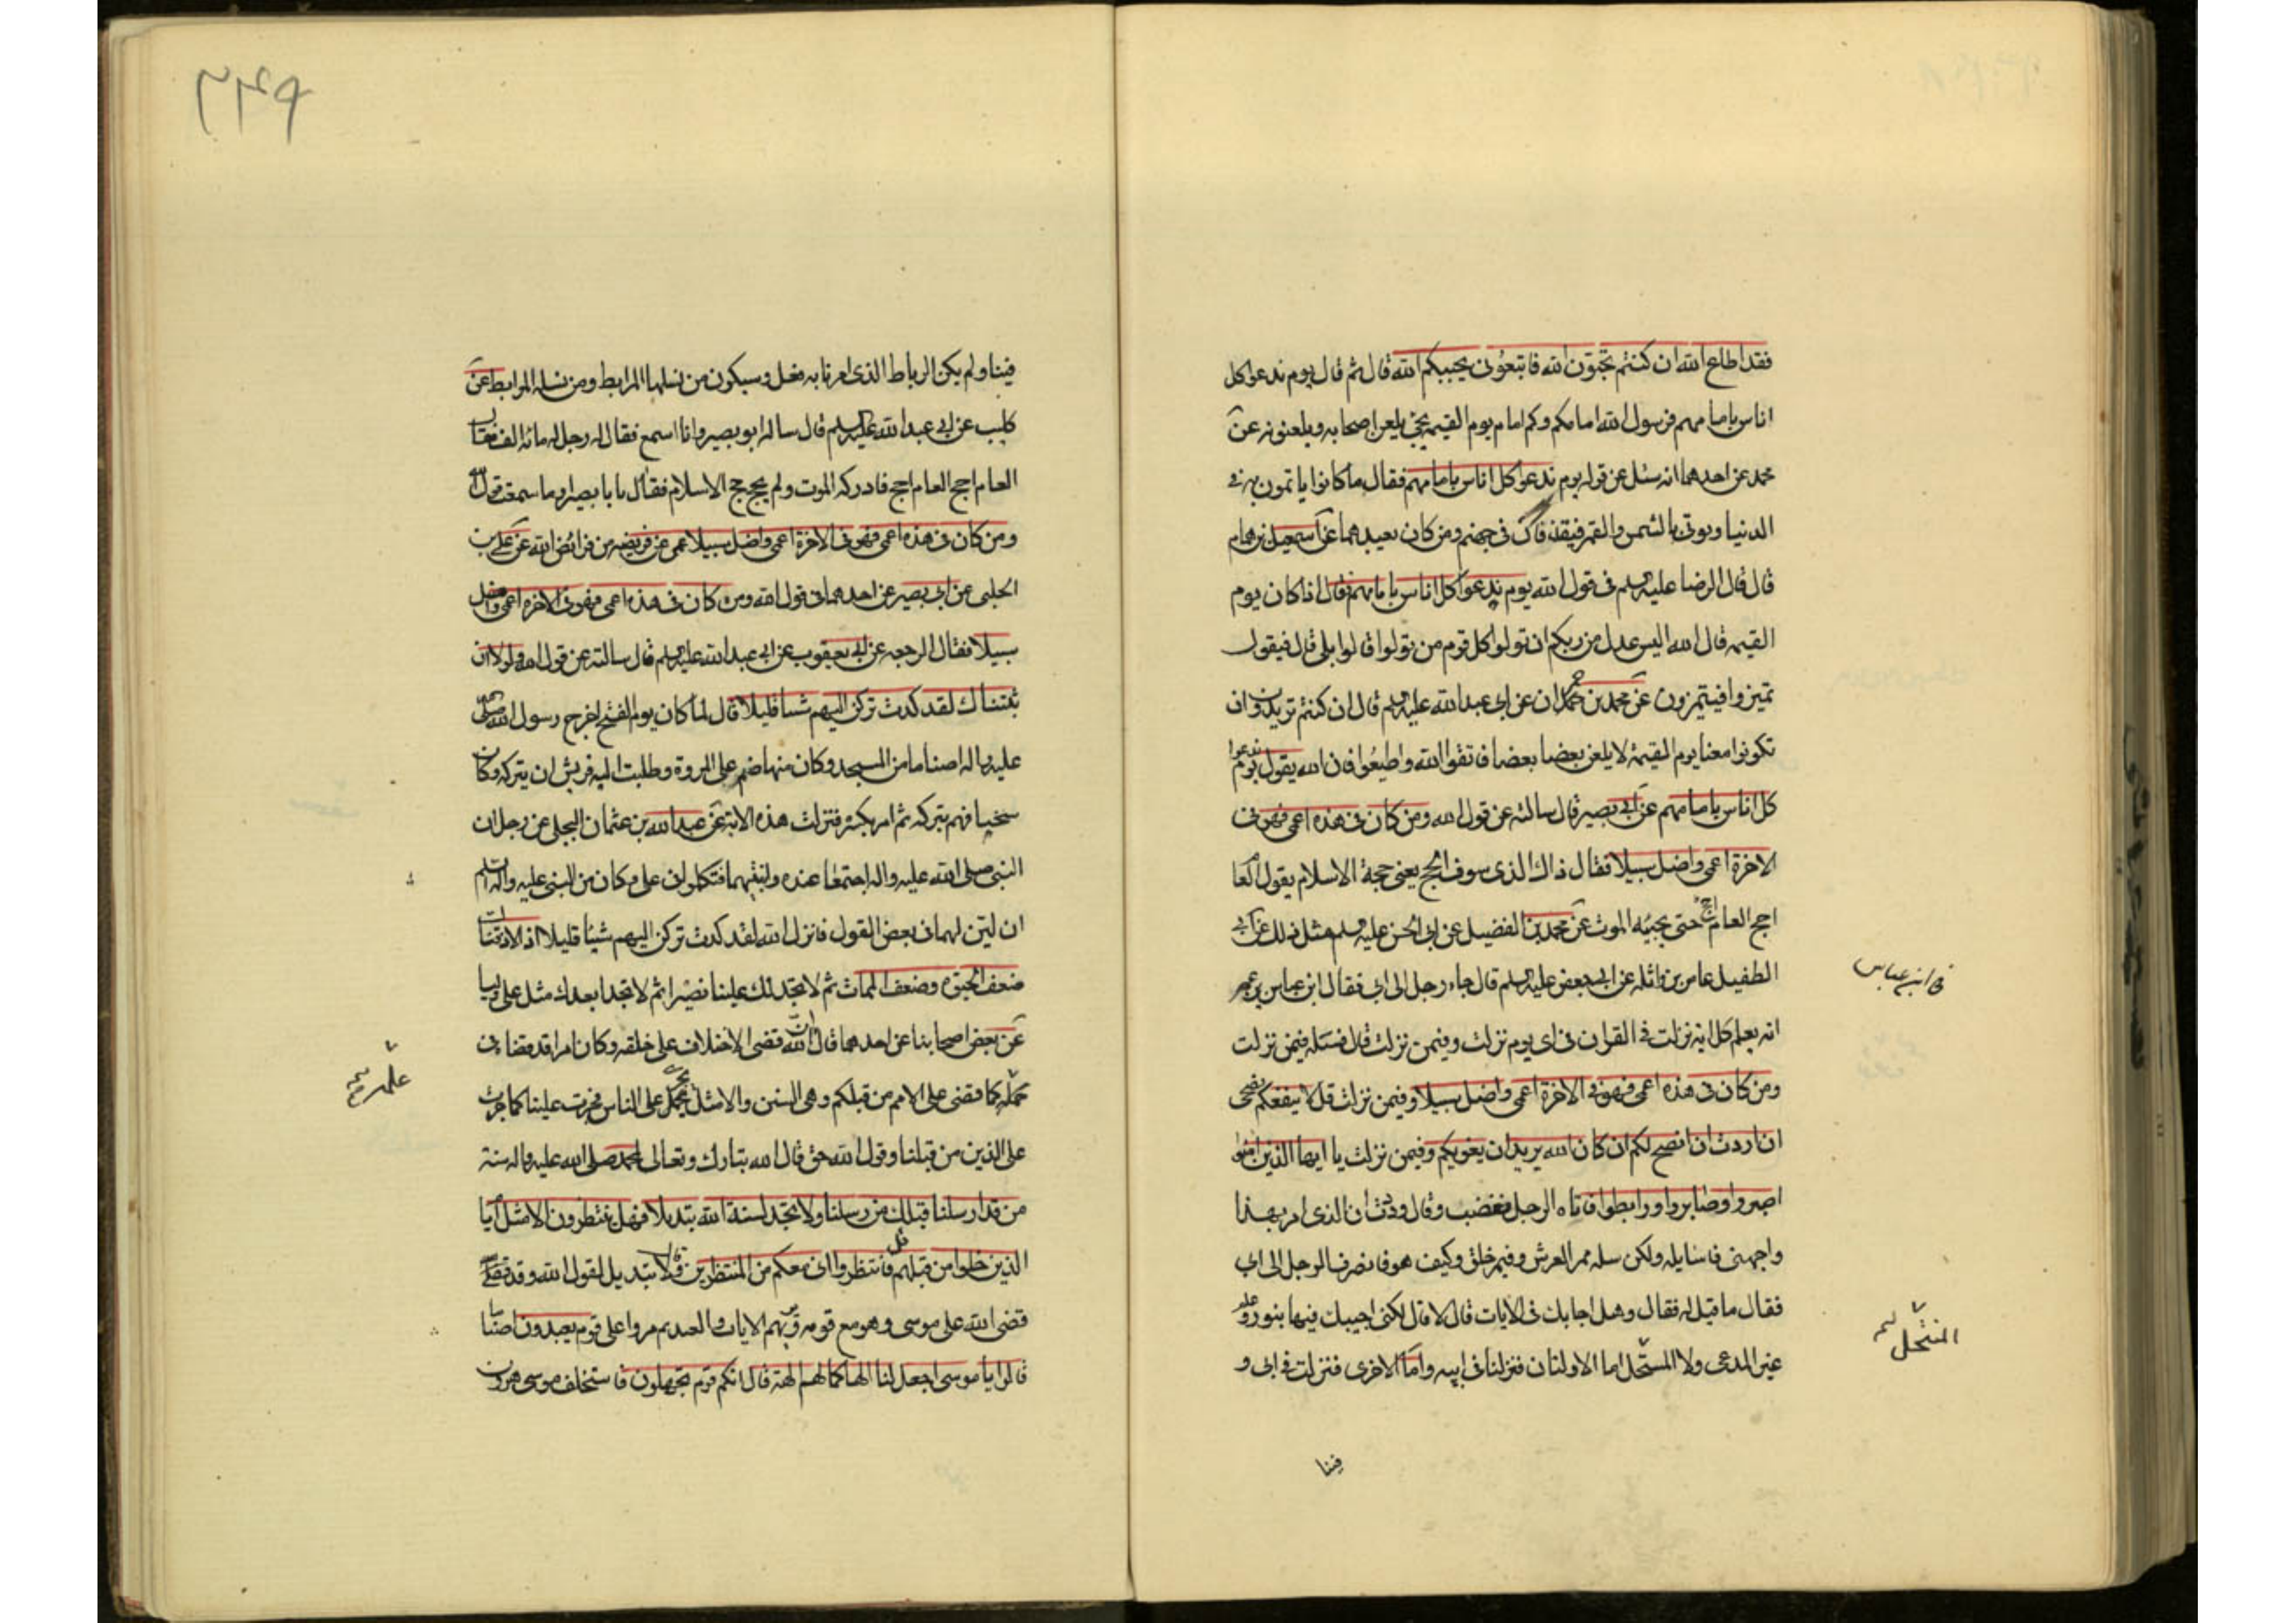 فقد اطاع الله ان كنتم تحبون الله فاتبعوني يحببكم الله قال ثم قال يوم ندعوا كل
اناس بامامهم فرسول الله امامكم وكم امام يوم القيمة يجئ يلعن اصحابه ويلعنونه عن
محمد عن احدهما انه سئل عن قوله يوم ندعوا كل اناس بامامهم فقال ما كانوا ياتمون به في
الدنيا ويوتى بالشمس والقمر فيقذفان في جهنم ومن كان يعبدهما عن اسمعيل بن همام
قال قال الرضا عليه السلم في قول الله يوم ندعوا كل اناس بامامهم قال اذا كان يوم
القيمة قال الله اليس عدل من ربكم ان تولوا كل قوم من تولوا قالوا بلى قال فيقول
تميزوا فيتميزون عن محمد بن حمران عن ابي عبد الله عليه السلم قال ان كنتم تريدون ان
تكونوا معنا يوم القيمة لا يلعن بعضا بعضا فاتقوا الله واطيعوا فان الله يقول يوم ندعوا
كل اناس بامامهم عن ابي بصير قال سالته عن قول الله ومن كان في هذه اعمى فهو في
الاخرة اعمى واضل سبيلا فقال ذاك الذي سوف الحج يعني حجة الاسلام يقول العام
احج العام احج حتى يجيئه الموت عن محمد بن الفضيل عن ابي الحسن عليه السلم مثل ذلك عن ابي
الطفيل عامر بن واثلة عن ابي جعفر عليه السلم قال جاء رجل الى ابي فقال ابن عباس يزعم
في ابن عباس
انه يعلم كل اية نزلت في القران في اي يوم نزلت وفيمن نزلت قال فسله فيمن نزلت
ومن كان في هذه اعمى فهو في الاخرة اعمى واضل سبيلا وفيمن نزلت قل لا ينفعكم نصحي
ان اردت ان انصح لكم ان كان الله يريد ان يغويكم وفيمن نزلت يا ايها الذين امنوا
اصبروا وصابروا ورابطوا فاتاه الرجل فغضب وقال وددت ان الذي امر بهذا
واجهني فاسايله ولكن سله مم العرش وفيم خلق وكيف هو فانصرف الرجل الى ابي
فقال ما قيل له فقال وهل اجابك في الايات قال لا قال لكني اجيبك فيها بنور وعلم
غير المدعى ولا المنتحل اما الاولتان فنزلتا في ابيه واما الاخرى فنزلت في ابي و
المنتحل
فينا
٢٤٩
فينا ولم يكن الرباط الذي امرنا به فعل وسيكون من نسلها المرابط ومن نسله المرابط عن
كليب عن ابي عبد الله عليه السلم قال ساله ابو بصير وانا اسمع فقال له رجل له مائة الف فقال
العام احج العام احج فادركه الموت ولم يحج حج الاسلام فقال يا با بصير او ما سمعت قول الله
ومن كان في هذه اعمى فهو في الاخرة اعمى واضل سبيلا عمى عن فريضة من فرائض الله عن علي بن
الحلبي عن ابي بصير عن احدهما في قول الله ومن كان في هذه اعمى فهو في الاخرة اعمى واضل
سبيلا فقال الرجعة عن ابي يعقوب عن ابي عبد الله عليه السلم قال سالته عن قول الله ولولا ان
ثبتناك لقد كدت تركن اليهم شيئا قليلا قال لما كان يوم الفتح اخرج رسول الله صلى الله
عليه واله اصناما من المسجد وكان منها صنم على المروة وطلبت اليه قريش ان يتركه وكان
سخيا فهم بتركه ثم امر بكسره فنزلت هذه الاية عن عبد الله بن عثمان البجلي عن رجل ان
النبي صلى الله عليه واله اجتمعا عنده وابنتيهما فتكلموا في علي وكان من النبي عليه واله السلم
ان لين لهما في بعض القول فانزل الله لقد كدت تركن اليهم شيئا قليلا اذا لاذقناك
ضعف الحيوة وضعف الممات ثم لا تجد لك علينا نصيرا ثم لا تجد بعدك مثل علي وليا
عن بعض اصحابنا عن احدهما قال ان الله قضى الاختلاف على خلقه وكان امرا قد قضاه في
علمه كما قضى على الامم من قبلكم وهي السنن والامثل يجري على الناس فجرت علينا كما جرت
علمه
على الذين من قبلنا وقول الله حق قال الله تبارك وتعالى لمحمد صلى الله عليه واله سنة
من قد ارسلنا قبلك من رسلنا ولا تجد لسنة الله تبديلا فهل ينتظرون الا مثل ايام
الذين خلوا من قبلهم قل فانتظروا اني معكم من المنتظرين وقال لا تبديل لقول الله وقد
قضى الله على موسى وهو مع قومه يريهم الايات والعبر ثم مروا على قوم يعبدون اصناما
قالوا يا موسى اجعل لنا الها كما لهم الهة قال انكم قوم تجهلون فاستخلف موسى هرون